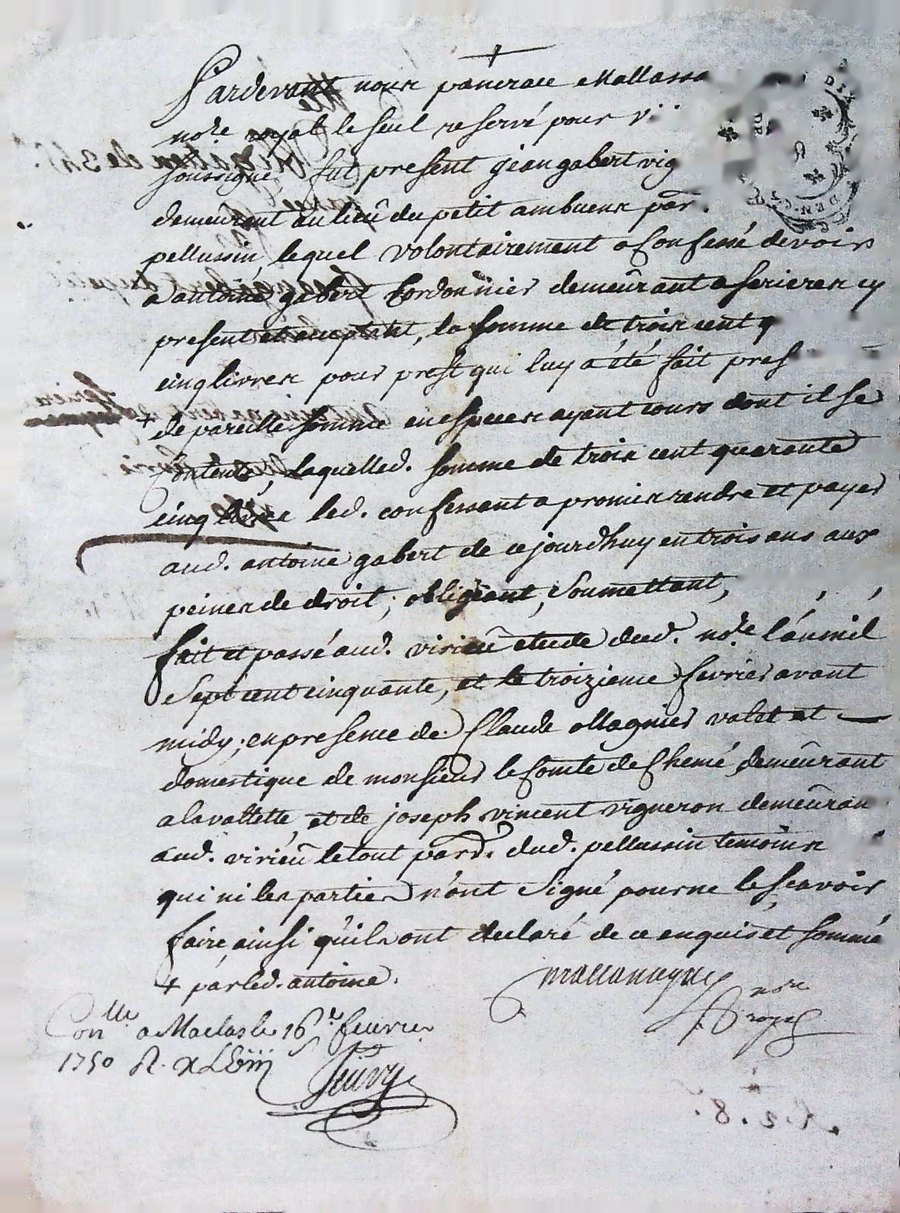 Pardevant nous pancrace Mallassa
no.re royal le seul reservé pour vi
soussigné fut present jean gabert vig
demeurant au lieu du petit ambuent par.
pellussin lequel volontairement a confessé devoir
a antoine gabert Cordonnier demeurant a serieres cy
present et acceptant, la somme de trois cent q
cinq livres pour prest qui luy a été fait pres
+ de pareille somme en especes ayant cours dont il se
contente, laquelle d. somme de trois cent quarente
cinq livres led. confessant a promis rendre et payer
aud. antoine gabert de ce jourdhuy en trois ans aux
peines de droit; obligeant, soumettant,
fait et passé aud. virieu etude dud. no.re l'an mil
sept cent cinquante, et le troizieme fevrier avant
midy; en presence de Claude Ollagnier valet et
domestique de monsieur le Comte de Chemé, demeurant
a lavallette et de joseph vincent vigneron demeuran
aud. virieu le tout par.d. dud. pellussin temoins
qui ni les parties n'ont signé pour ne le scavoir
faire, ainsi qu'ils ont declaré de ce enquis et sommé
+ par led. antoine.
no.re
royal
Con.lle a Maclas le 16.e fevrier
1750 R.
R. 2. 8.